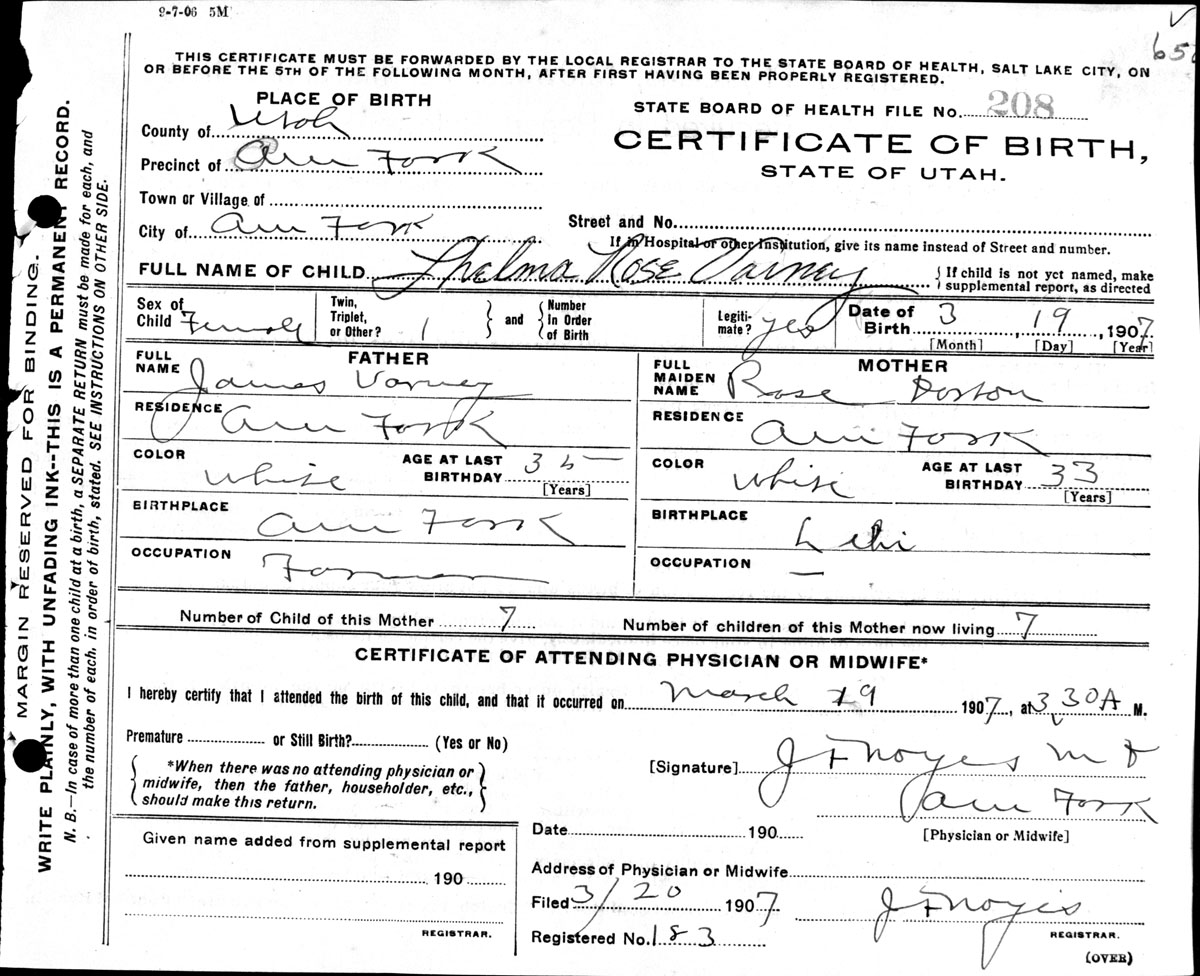 9-7-06 5M
V
65
THIS CERTIFICATE MUST BE FORWARDED BY THE LOCAL REGISTRAR TO THE STATE BOARD OF HEALTH, SALT LAKE CITY, ON
OR BEFORE THE 5TH OF THE FOLLOWING MONTH, AFTER FIRST HAVING BEEN PROPERLY REGISTERED.
MARGIN RESERVED FOR BINDING.
WRITE PLAINLY, WITH UNFADING INK--THIS IS A PERMANENT RECORD.
N. B.—In case of more than one child at a birth, a SEPARATE RETURN must be made for each, and
the number of each, in order of birth, stated. SEE INSTRUCTIONS ON OTHER SIDE.
PLACE OF BIRTH
County of Utah
Precinct of Am Fork
Town or Village of
City of Am Fork
STATE BOARD OF HEALTH FILE No. 208
CERTIFICATE OF BIRTH,
STATE OF UTAH.
Street and No.
If in Hospital or other Institution, give its name instead of Street and number.
FULL NAME OF CHILD Thelma Rose Varney
If child is not yet named, make
supplemental report, as directed
Sex of Child Female
Twin, Triplet, or Other? 1
and
Number In Order of Birth
Legiti-mate? yes
Date of Birth 3 19, 1907
[Month] [Day] [Year]
FATHER
FULL NAME James Varney
RESIDENCE Am Fork
COLOR White
AGE AT LAST BIRTHDAY 35
[Years]
BIRTHPLACE Am Fork
OCCUPATION Farmer
MOTHER
FULL MAIDEN NAME Rose Dorton
RESIDENCE Am Fork
COLOR White
AGE AT LAST BIRTHDAY 33
[Years]
BIRTHPLACE Lehi
OCCUPATION —
Number of Child of this Mother 7
Number of children of this Mother now living 7
CERTIFICATE OF ATTENDING PHYSICIAN OR MIDWIFE*
I hereby certify that I attended the birth of this child, and that it occurred on March 19 1907, at 3 30 A M.
Premature or Still Birth? (Yes or No)
*When there was no attending physician or
midwife, then the father, householder, etc.,
should make this return.
[Signature] J F Noyes M D
Am Fork
[Physician or Midwife]
Date 190
Given name added from supplemental report
190
REGISTRAR.
Address of Physician or Midwife
Filed 3/20 1907
J F Noyes
REGISTRAR.
Registered No. 183
(OVER)